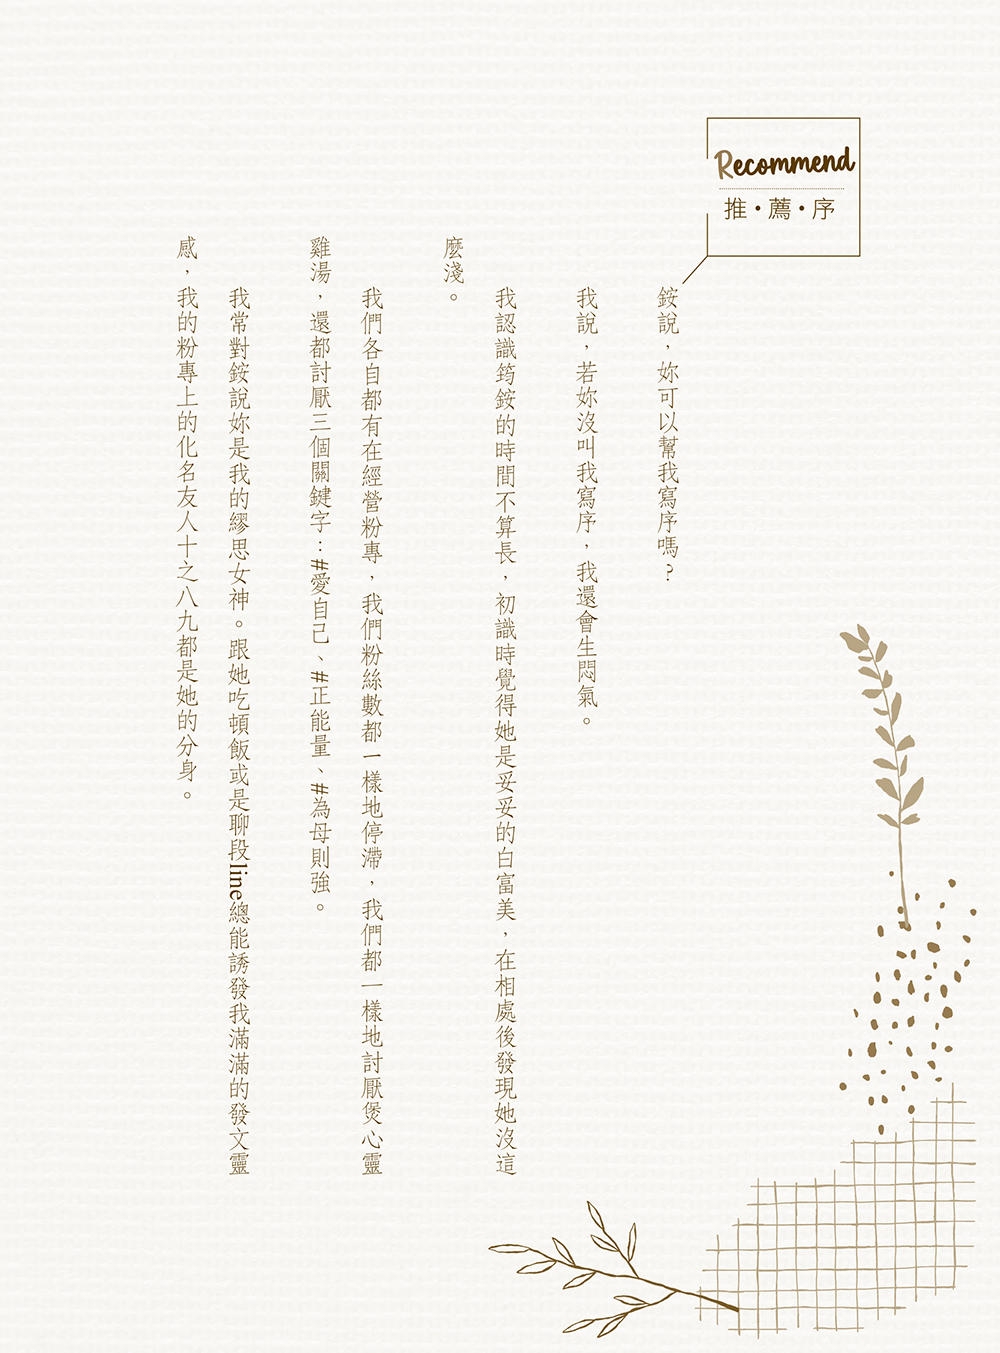 Recommend
推•薦•序
銨說，妳可以幫我寫序嗎？
我說，若妳沒叫我寫序，我還會生悶氣。
我認識筠銨的時間不算長，初識時覺得她是妥妥的白富美，在相處後發現她沒這
麼淺。
我們各自都有在經營粉專，我們粉絲數都一樣地停滯，我們都一樣地討厭煲心靈
雞湯，還都討厭三個關鍵字：#愛自己、#正能量、#為母則強。
我常對銨說妳是我的繆思女神。跟她吃頓飯或是聊段line總能誘發我滿滿的發文靈
感，我的粉專上的化名友人十之八九都是她的分身。